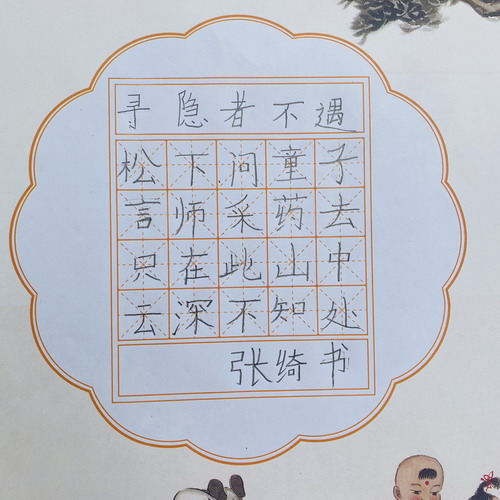 寻隐者不遇
松下问童子
言师采药去
只在此山中
云深不知处
张绮书